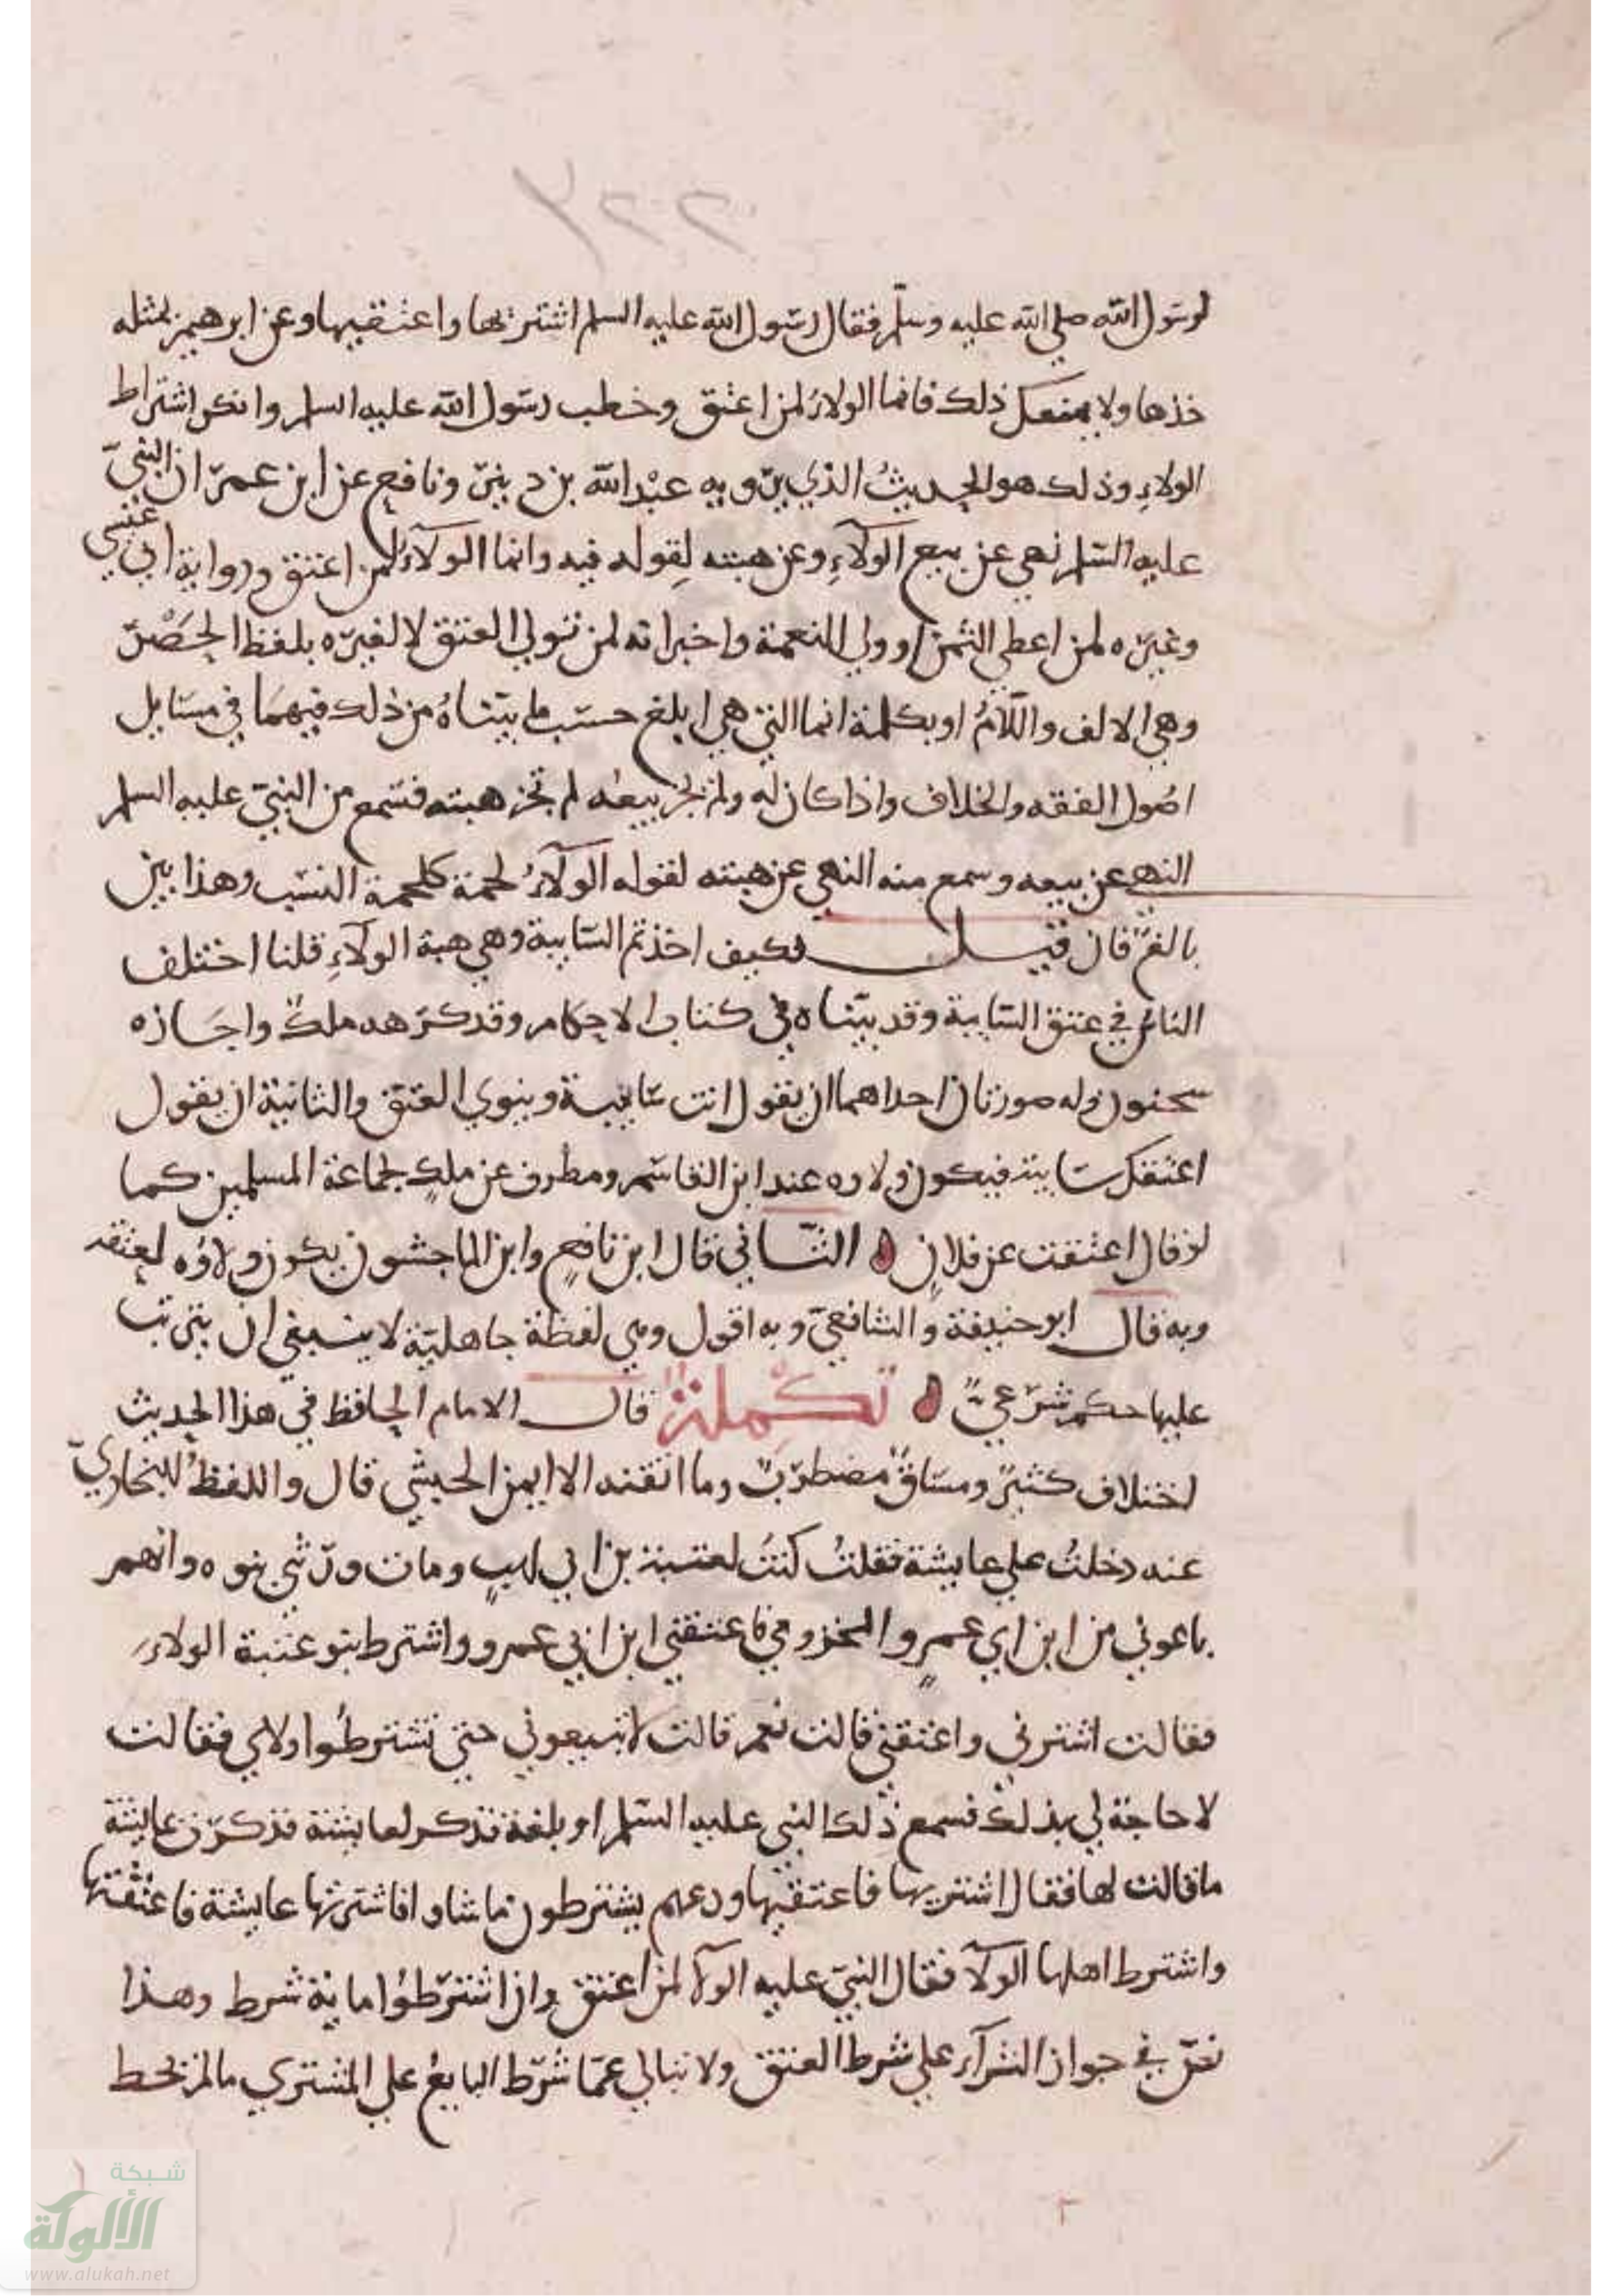 ٢٢٧
لرسول الله صلي الله عليه وسلم فقال رسول الله عليه السلم اشتريها واعتقيها وعن ابرهيم بمثله
خذها ولا يمنعك ذلك فانما الولاءُ لمن اعتق وخطب رسول الله عليه السلم وانكر اشتراط
الولاءِ وذلك هو الحديثُ الذي يرويه عبد الله بن دينر ونافع عن ابن عمر ان النبيّ
عليه السلم نهي عن بيع الولآءِ وعن هبته لِقوله فيه وانما الولآءُ لمن اعتق ورواية ابي عيسي
وغيره لمن اعطي الثمن او ولي النعمة واخبر انه لمن تولي العتق لا لغيره بلفظ الحَصْر
وهي الالف واللّامُ او بكلمة انما التي هي ابلغ حسب ما بيّناهُ من ذلك فيهما في مسايل
اصُول الفقه والخلاف واذا كان له ولم يجز بيعه لم تجز هبته فسمع من النبيّ عليه السلم
النهي عن بيعه وسمع منه النهي عن هبته لقوله الولآءُ لحمة كلحمة النسب وهذا بين
بالغ فان قيل فكيف اخذتم السايبة وهي هبة الولآءِ قلنا اختلف
الناس في عتق السايبة وقد بيّناه في كتاب الاحكام وقد كرهه ملك واجازه
سحنون وله صورتان احداهما ان يقول انت سايبة وينوي العتق والثانية ان يقول
اعتقتك سايبة فيكون ولاوه عند ابن القاسم ومطرف عن ملكٍ لجماعة المسلمين كما
لو قال اعتقت عن فلانٍ ه الثاني قال ابن نافعٍ وابن الماجشون يكون ولاؤه لمعتقه
وبه قال ابو حنيفة والشافعيّ وبه اقول وهي لفظة جاهليّة لا ينبغي ان يترتب
عليها حكم شرعيٌّ ه تكملة قال الامام الحافظ في هذا الحديث
اختلاف كثيرٌ ومساقٌ مضطربٌ وما اتقنه الا ايمن الحبشي قال واللفظُ للبخاريّ
عنه دخلتُ علي عايشة فقلتُ كنتُ لعتبة بن ابي لهبٍ ومات وورثني بنوه وانهم
باعوني من ابن ابي عمرٍو المخزومي فاعتقني ابن ابي عمرو واشترط بنو عتبة الولاء
فقالت اشترني واعتقني قالت نعم قالت لا تبيعوني حتي تشترطُوا ولاي فقالت
لا حاجة لي بذلك فسمع ذلك النبي عليه السلم او بلغه فذكر لعايشة فذكرت عايشة
ما قالت لها فقال اشتريها فاعتقيها ودعهم يشترطون ما شاوا فاشترتها عايشة فاعتقتها
واشترط اهلها الولآ فقال النبيّ عليه الولآ لمن اعتق وان اشترطُوا ماية شرط وهذا
نصّ في جواز الشرآء علي شرط العتق ولا نبالي عمّا شرط البايعُ علي المشتري ما لم يحط
شبكة
الألوكة
www.alukah.net